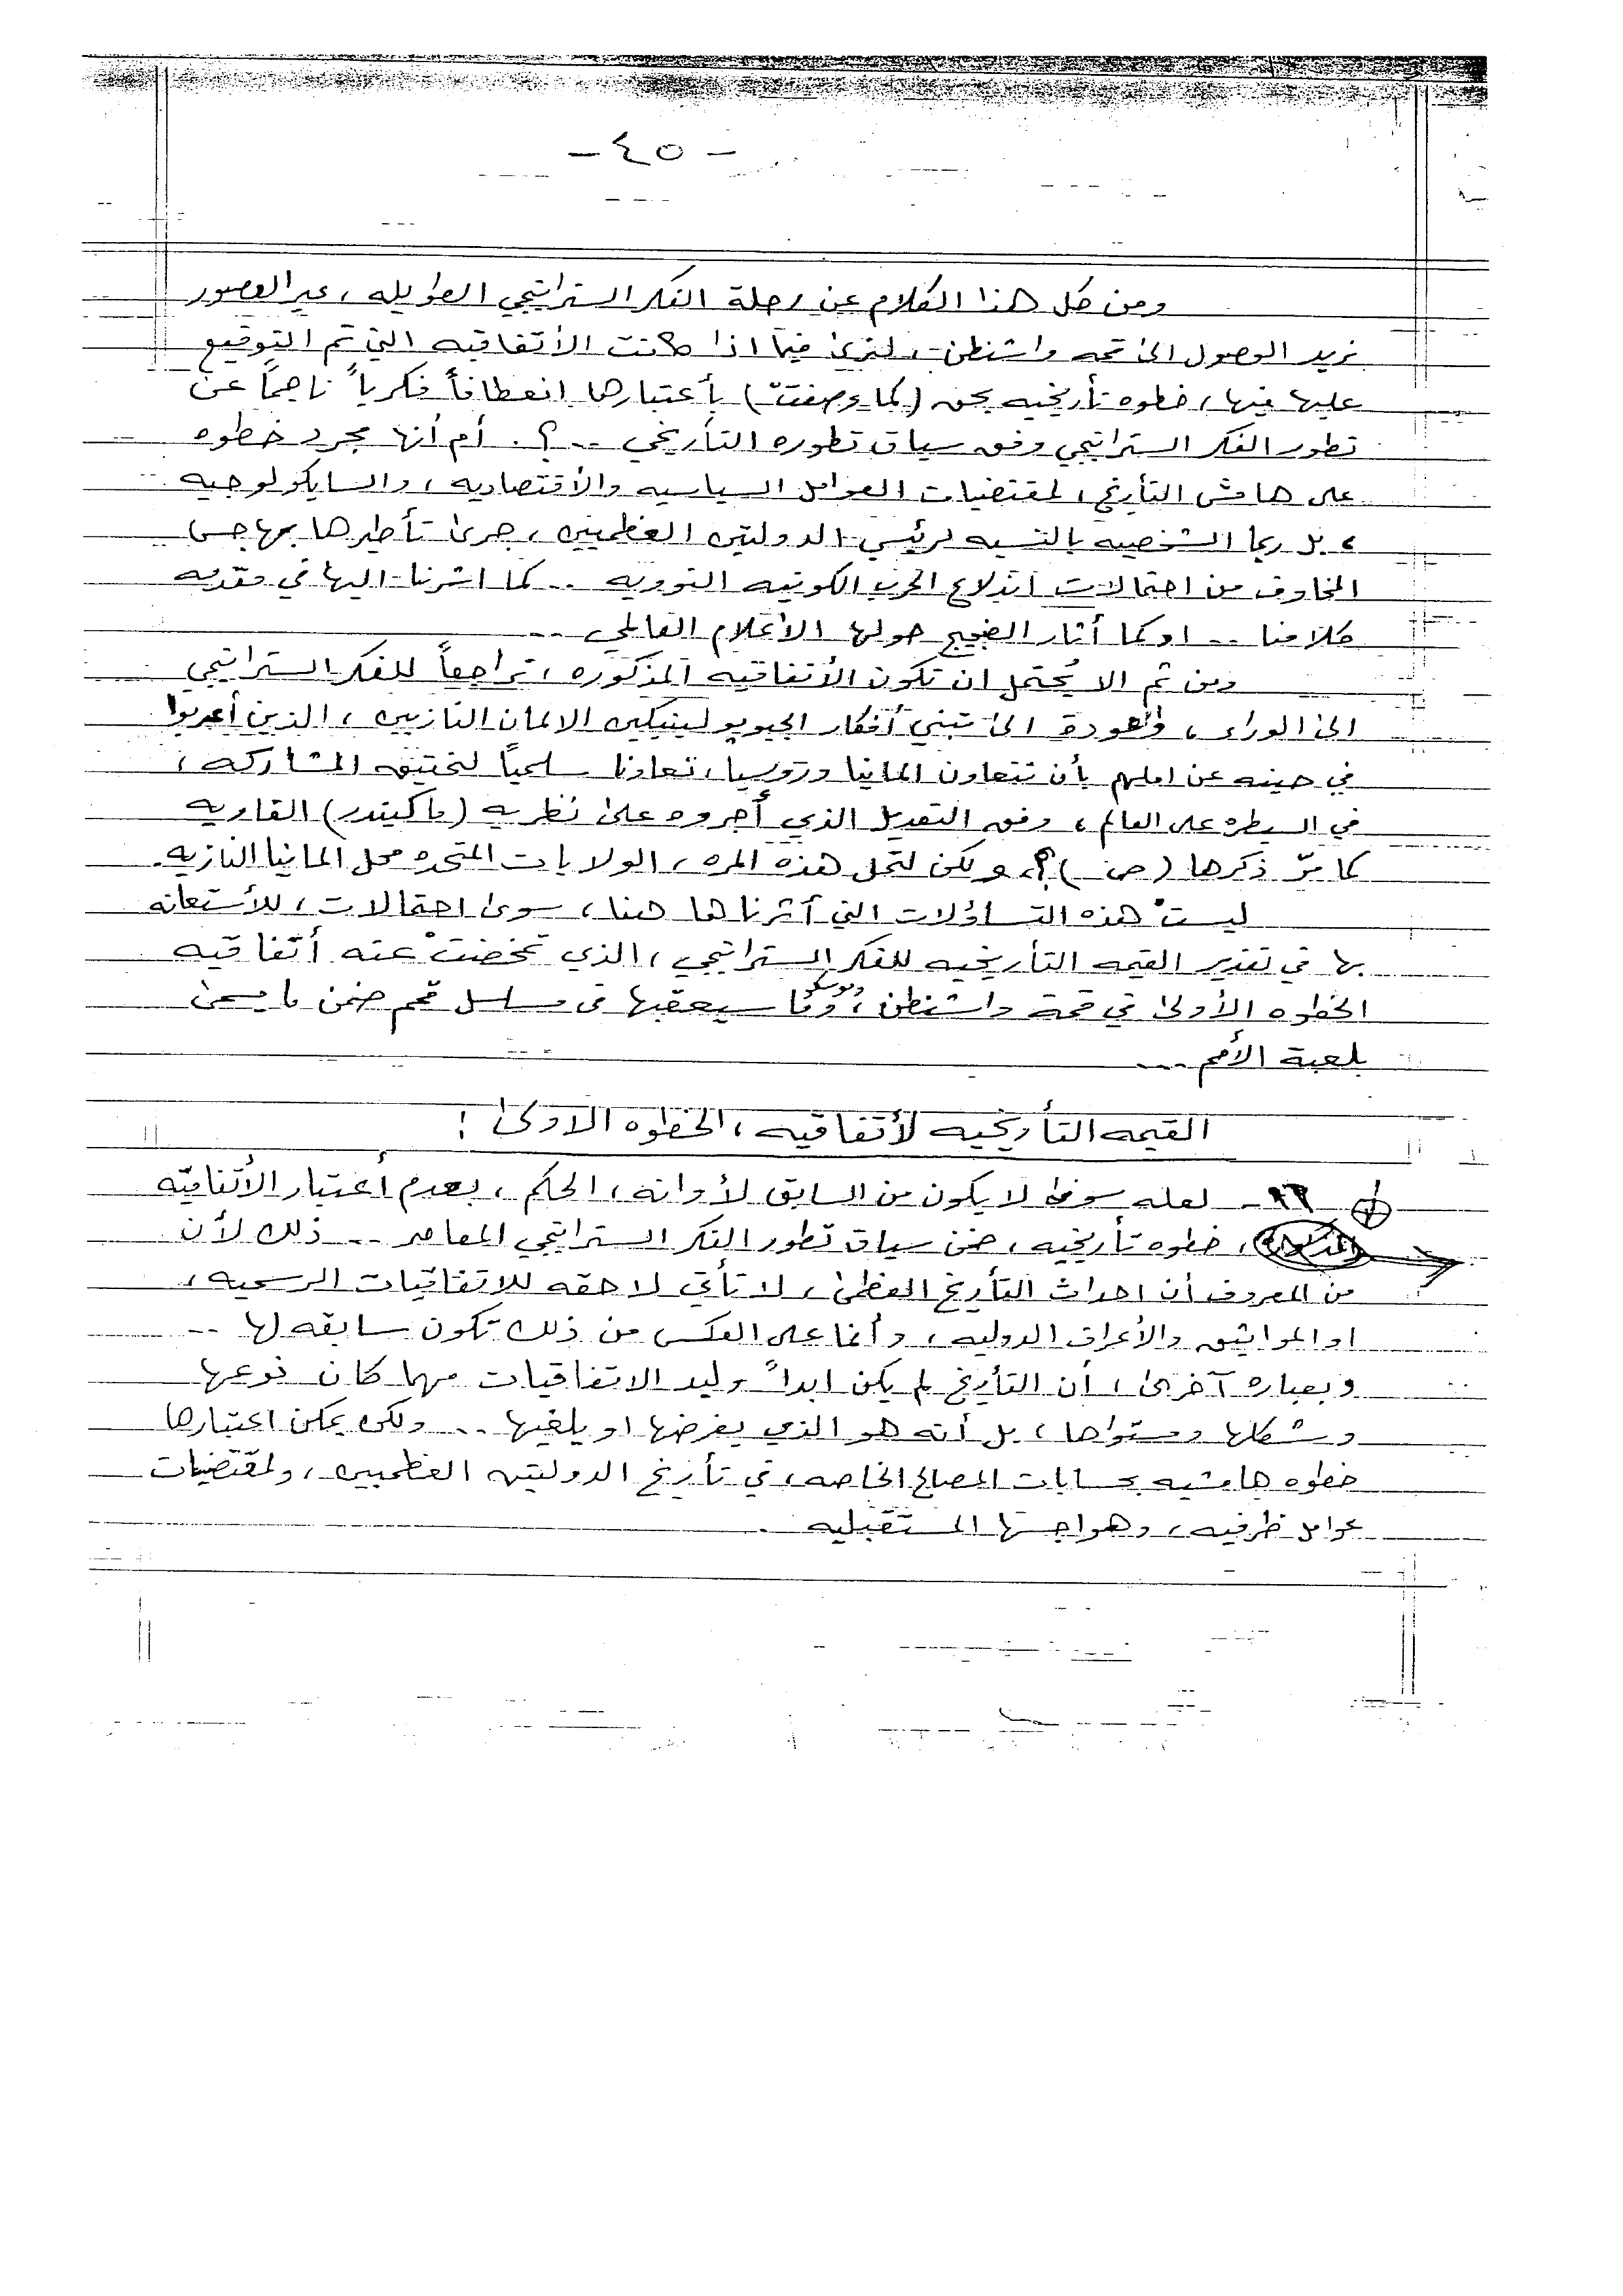 - ٤٥ -
ومن كل هذا الكلام عن رحلة الفكر الستراتيجي الطويله ، عبر العصور
نريد الوصول الى قمه واشنطن ، لنرى فيما اذا كانت الأتفاقيه التي تم التوقيع
عليها فيها ، خطوه تأريخيه بحق (كما وصفت) بأعتبارها انعطافاً فكرياً ناجماً عن
تطور الفكر الستراتيجي وفق سياق تطوره التأريخي .. ؟ . أم أنها مجرد خطوه
على هامش التأريخ ، لمقتضيات العوامل السياسيه والأقتصاديه ، والسايكولوجيه
، بل ربما الشخصيه بالنسبه لرئيسي الدولتين العظميين ، جرى تأطيرها بهاجس
المخاوف من احتمالات اندلاع الحرب الكونيه النوويه .. كما اشرنا اليها في مقدمه
كلامنا .. او كما أثار الضجيج حولها الأعلام العالمي ..
ومن ثم الا يُحتمل ان تكون الأتفاقيه المذكوره ، تراجعاً للفكر الستراتيجي
الى الوراء ، والعودة الى تبني أفكار الجيوبوليتيكين الالمان النازيين ، الذين أعربوا
في حينه عن املهم بأن تتعاون المانيا وروسيا ، تعاونا سلمياً لتحقيق المشاركه ،
في السيطره على العالم ، وفق التعديل الذي أجروه على نظريه (ماكيندر) القاريه
كما مرّ ذكرها (ص ) ؟ ، ولكن لتحل هذه المره ، الولايات المتحده محل المانيا النازيه .
ليستْ هذه التساؤلات التي أثرناها هنا ، سوى احتمالات ، للأستعانه
بها في تقدير القيمه التأريخيه للفكر الستراتيجي ، الذي تمخضتْ عنه أتفاقيه
الخطوه الأولى في قمة واشنطن ، وموسكو وما سيعقبها في مسلسل قمم ضمن ما يسمى
بلعبة الأمم ...
القيمه التأريخيه لأتفاقيه ، الخطوه الاولى :
٢٦ - لعله سوف لا يكون من السابق لأوانه ، الحكم ، بعدم أعتبار الأتفاقيّه
المذكوره ، خطوه تأريخيه ، ضمن سياق تطور الفكر الستراتيجي المعاصر .. ذلك لأن
من المعروف أن احداث التأريخ العظمى ، لا تأتي لاحقه للاتفاقيات الرسميه ،
او المواثيق والأعراف الدوليه ، وأنما على العكس من ذلك تكون سابقه لها ..
وبعباره آخرى ، أن التأريخ لم يكن ابداً وليد الاتفاقيات مهما كان نوعها
وشكلها ومستواها ، بل أنه هو الذي يفرضها او يلغيها .. ولكن يمكن اعتبارها
خطوه هامشيه بحسابات المصالح الخاصه ، في تأريخ الدولتين العظميين ، ولمقتضيات
عوامل ظرفيه ، وهواجسها المستقبليه .